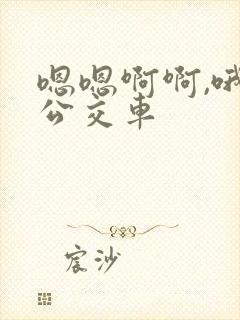 嗯嗯啊啊,哦
公交车
宸沙